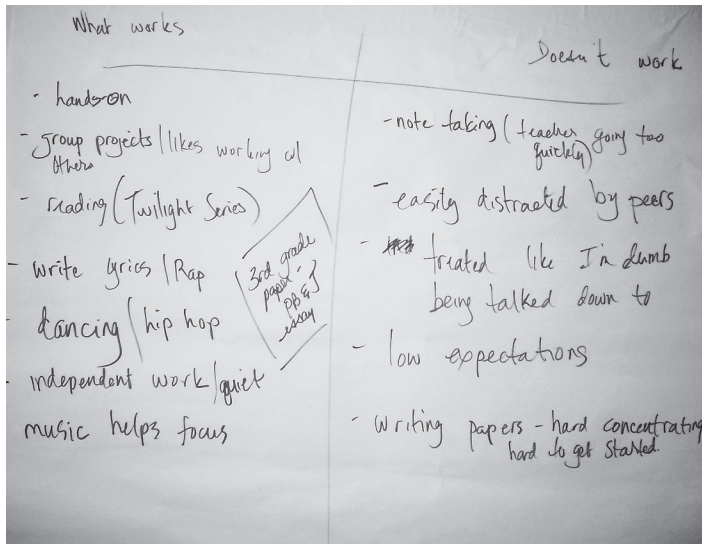 What works
- hands-on
- group projects/likes working w/
others
- reading (Twilight Series)
- write lyrics/Rap
- dancing/hip hop
- independent work/quiet
music helps focus
3rd grade
paper -
PB & J
essay
Doesn't work
- note taking (teacher going too
quickly)
- easily distracted by peers
- treated like I'm dumb
being talked down to
- low expectations
- writing papers - hard concentrating
hard to get started.